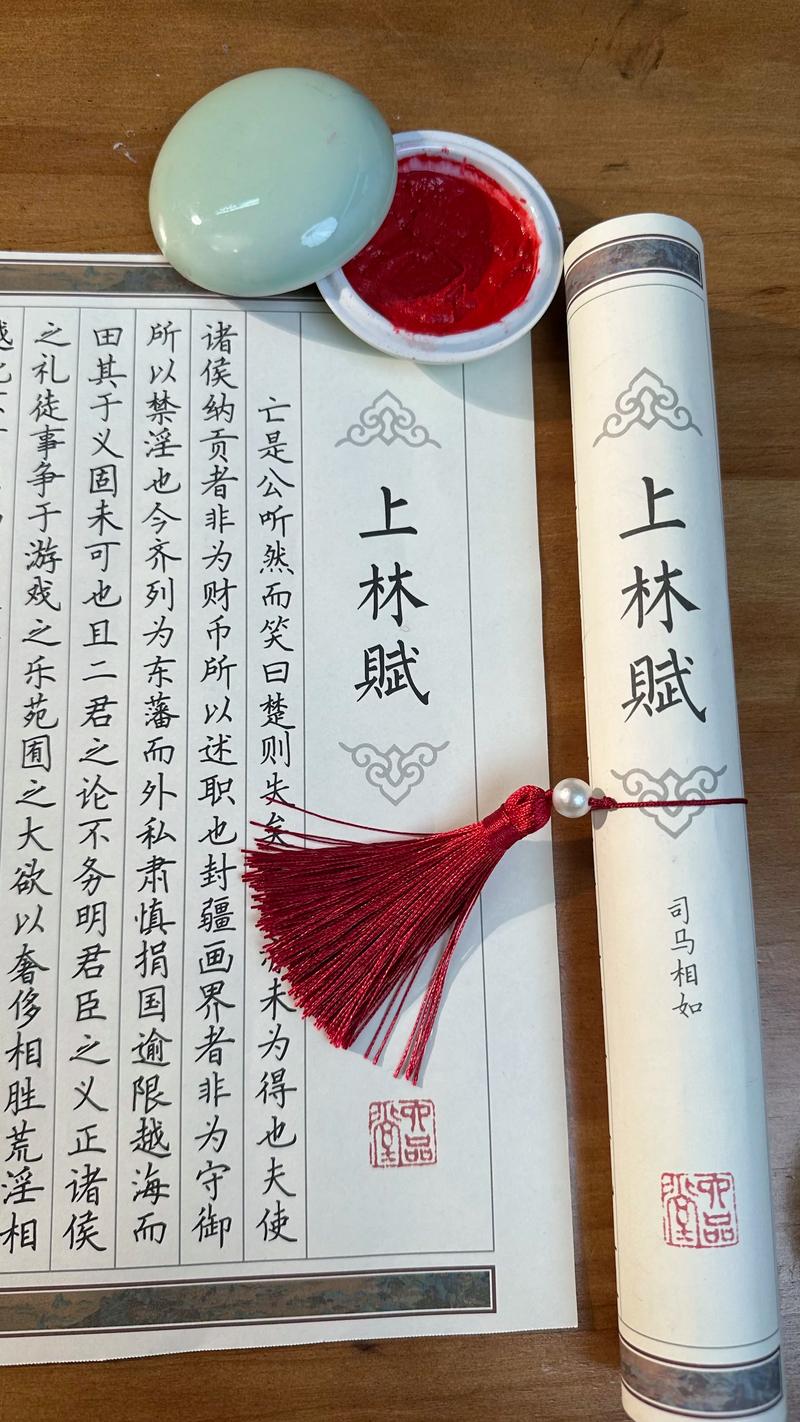 上林賦
司马相如
上林賦
亡是公听然而笑曰楚则失矣未为得也夫使
诸侯纳贡者非为财币所以述职也封疆画界者非为守御
所以禁淫也今齐列为东藩而外私肃慎捐国逾限越海而
田其于义固未可也且二君之论不务明君臣之义正诸侯
之礼徒事争于游戏之乐苑囿之大欲以奢侈相胜荒淫相